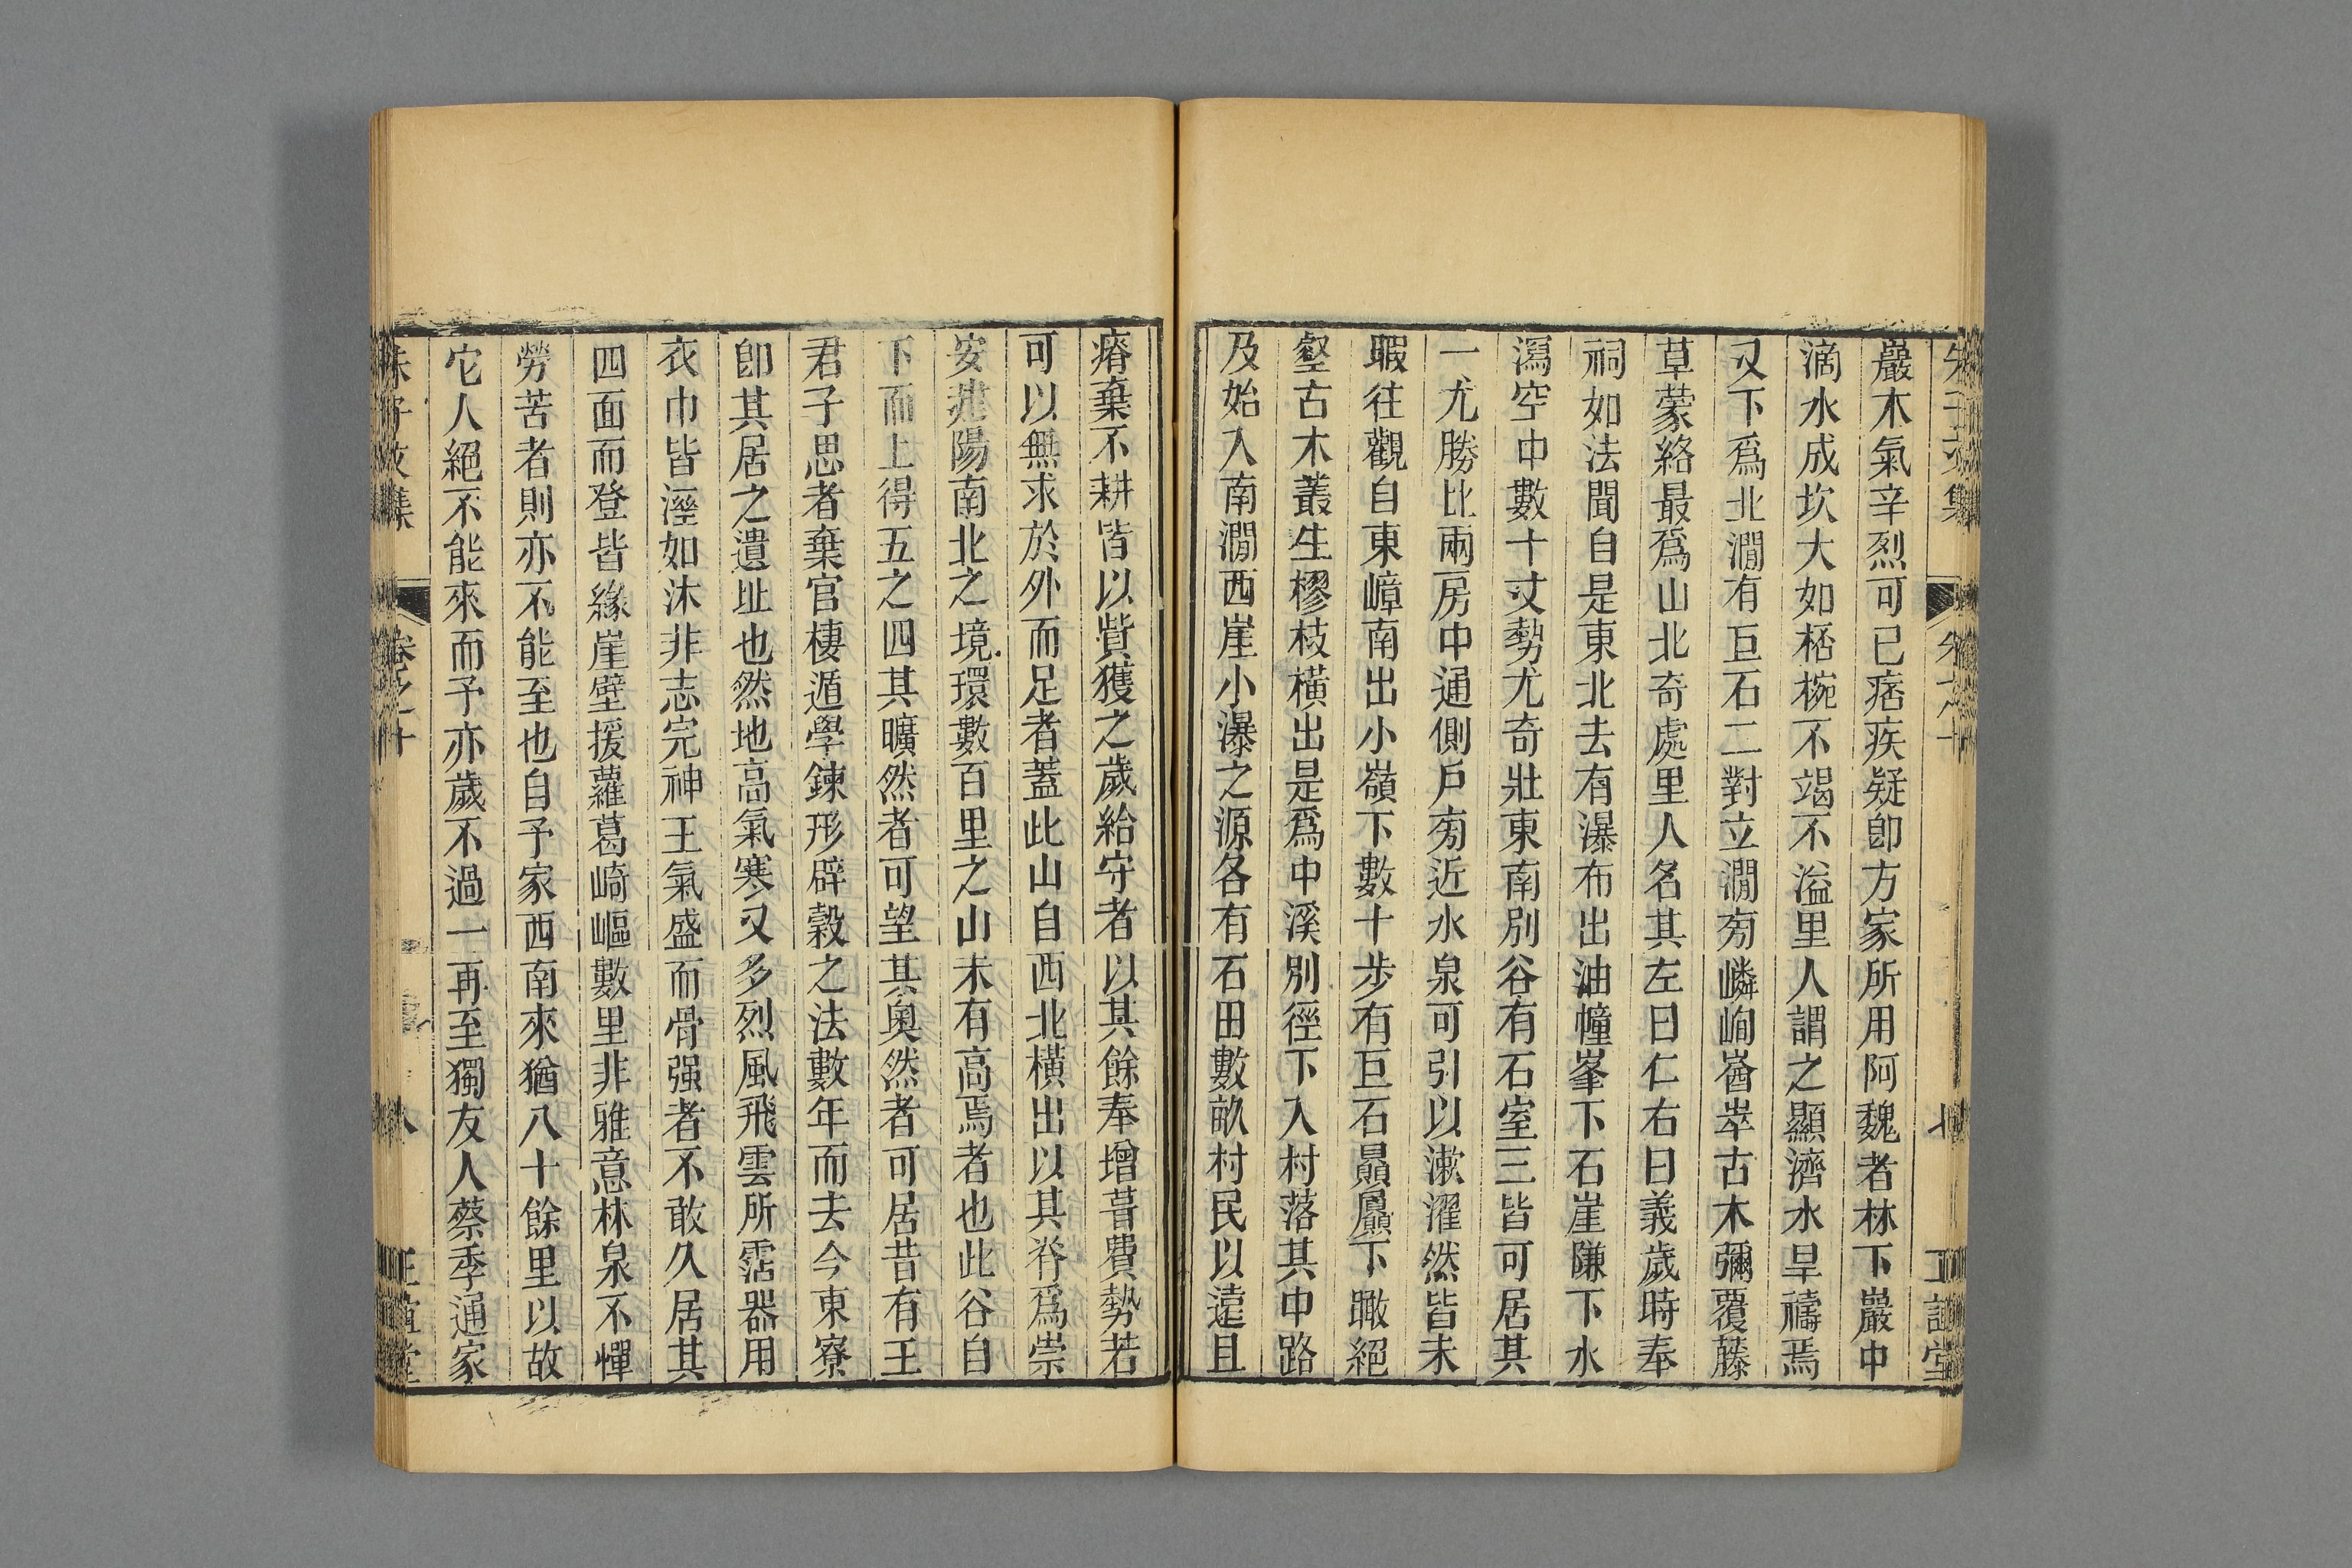 巖木氣辛烈可已痞疾疑卽方家所用阿魏者林下巖中
滴水成坎大如桮椀不竭不溢里人謂之顯濟水旱禱焉
又下爲北澗有巨石二對立澗旁嶙峋崷崒古木彌覆藤
草蒙絡最爲山北奇處里人名其左曰仁右曰義歲時奉
祠如法聞自是東北去有瀑布出油幢峯下石崖隒下水
瀉空中數十丈勢尤奇壯東南別谷有石室三皆可居其
一尤勝比兩房中通側戶旁近水泉可引以漱濯然皆未
暇往觀自東嶂南出小嶺下數十步有巨石贔屭下瞰絕
壑古木叢生樛枝橫出是爲中溪別徑下入村落其中路
及始入南澗西崖小瀑之源各有石田數畝村民以遠且
瘠棄不耕皆以貲獲之歲給守者以其餘奉增葺費勢若
可以無求於外而足者蓋此山自西北橫出以其脊爲崇
安建陽南北之境環數百里之山未有高焉者也此谷自
下而上得五之四其曠然者可望其奧然者可居昔有王
君子思者棄官棲遁學鍊形辟穀之法數年而去今東寮
卽其居之遺址也然地高氣寒又多烈風飛雲所霑器用
衣巾皆溼如沐非志完神王氣盛而骨强者不敢久居其
四面而登皆緣崖壁援蘿葛崎嶇數里非雅意林泉不憚
勞苦者則亦不能至也自予家西南來猶八十餘里以故
它人絕不能來而予亦歲不過一再至獨友人蔡季通家
朱子文集 卷之十 八 正誼堂